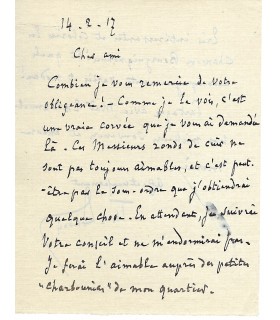 14-2-17
Cher ami
Combien je vous remercie de votre
obligeance! - Comme je le vois, c'est
une vraie corvée que je vous ai demandée
là. Ces Messieurs ronds de cuir ne
sont pas toujours aimables, et c'est peut-
-être pas la que j'obtiendrai
quelque chose. En attendant, je suivrai
votre conseil et ne m'endormirai pas.
Je ferai l'aimable auprès des petites
"charbonnières" de mon quartier.